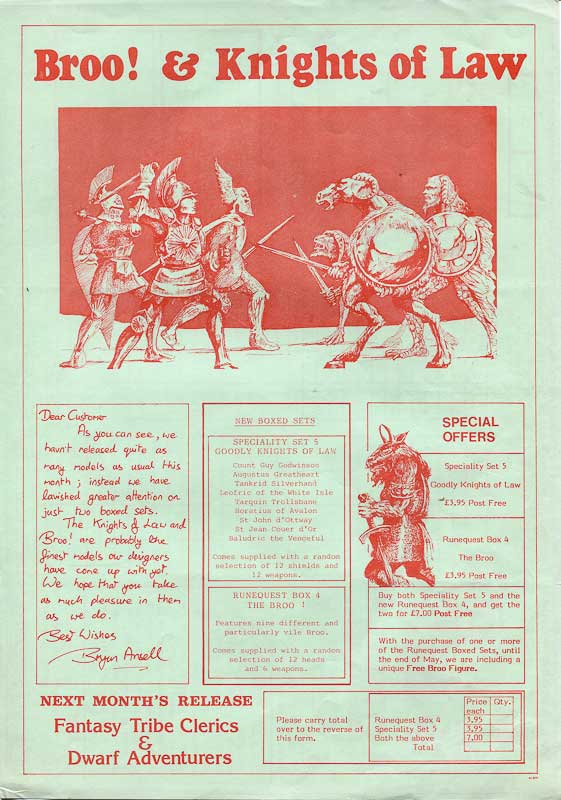 Broo! & Knights of Law
Dear Customer
As you can see, we
havn't released quite as
many models as usual this
month; instead we have
lavished greater attention on
just two boxed sets.
The Knights of Law and
Broo! are probably the
finest models our designers
have come up with yet.
We hope that you take
as much pleasure in them
as we do.
Best Wishes
Bryan Ansell
NEW BOXED SETS
SPECIALITY SET 5
GOODLY KNIGHTS OF LAW
Count Guy Godwinson
Augustus Greatheart
Tankrid Silverhand
Leofric of the White Isle
Tarquin Trollsbane
Horatius of Avalon
St John d'Ottway
St Jean Couer d'Or
Baludric the Vengeful
Comes supplied with a random
selection of 12 shields and
12 weapons.
RUNEQUEST BOX 4
THE BROO !
Features nine different and
particularly vile Broo.
Comes supplied with a random
selection of 12 heads
and 6 weapons.
SPECIAL
OFFERS
Speciality Set 5
Goodly Knights of Law
£3.95 Post Free
Runequest Box 4
The Broo
£3.95 Post Free
Buy both Speciality Set 5 and the
new Runequest Box 4, and get the
two for £7.00 Post Free
With the purchase of one or more
of the Runequest Boxed Sets, until
the end of May, we are including a
unique Free Broo Figure.
NEXT MONTH'S RELEASE
Fantasy Tribe Clerics
&
Dwarf Adventurers
Please carry total
over to the reverse of
this form.
Price each Qty.
Runequest Box 4 3.95
Speciality Set 5 3.95
Both the above 7.00
Total